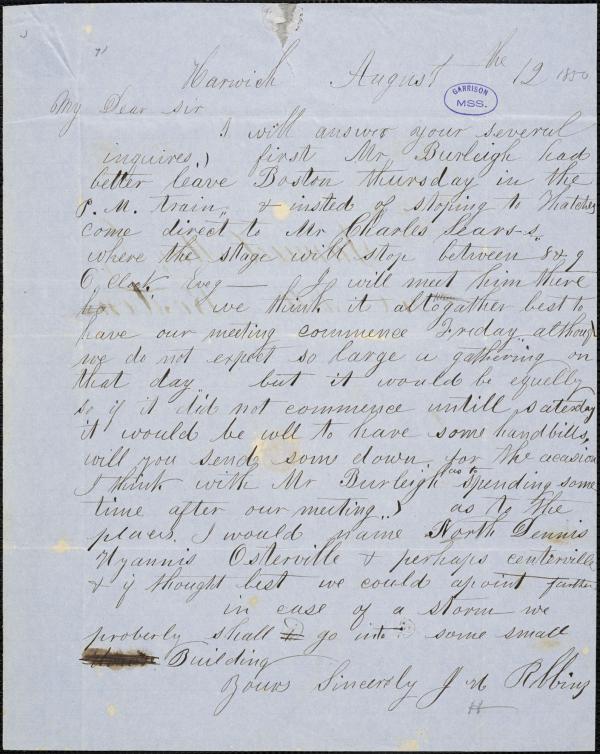 Harwich August the 12 1850
GARRISON
MSS.
My Dear Sir
I will answer your several
inquires.) first Mr Burleigh had
better leave Boston thursday in the
P. M. train, & insted of stoping to Thatchers
come direct to Mr Charles Sears-s.
where the stage will stop between 8 & 9
O,Clock. Eveg — I will meet him there
we think it altogather best to
have our meeting commence Friday although
we do not expect so large a gathering on
that day,, but it would be equelly
so if it did not commence untill saterday
it would be well to have some handbills,
will you send som down for the ocasion
I think with Mr Burleigh as to spending some
time after our meeting.) as to the
places. I would name North Dennis
Hyannis Osterville & perhaps centerville
& if thought best we could apoint farther
in case of a storm we
properly shall go into some small
Building
Yours Sincerely J H Robbins
H